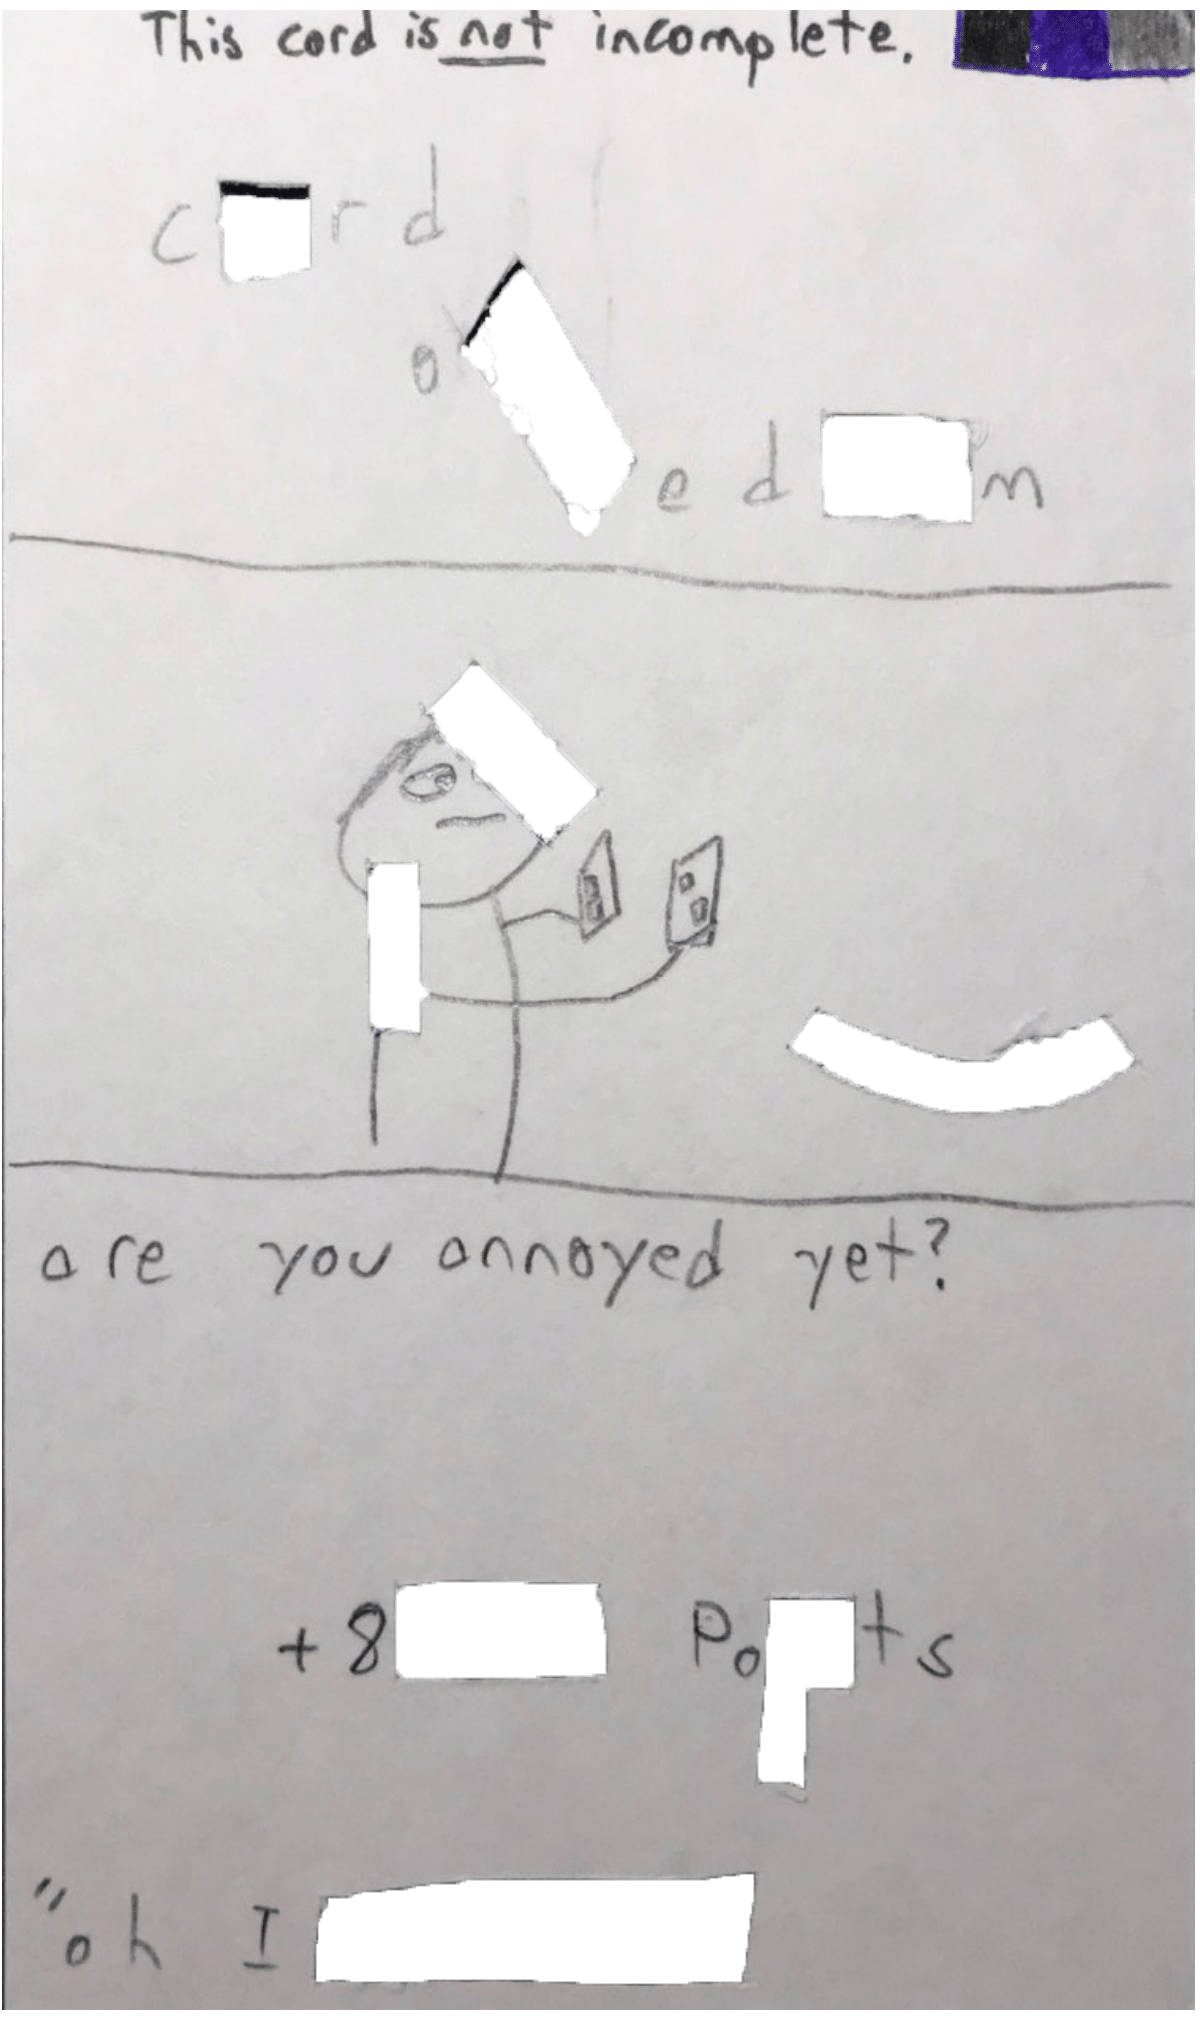 This card is not incomplete.
c rd
o
e d m
are you annoyed yet?
+8 Po ts
"oh I